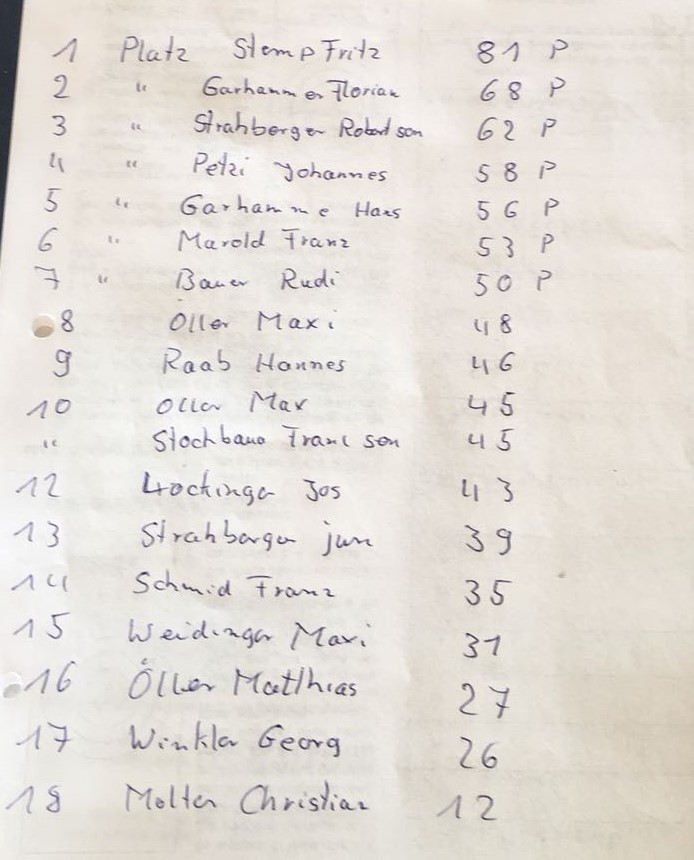 1 Platz Stemp Fritz 81 P
2 " Garhammer Florian 68 P
3 " Strahberger Robert sen 62 P
4 " Petzi Johannes 58 P
5 " Garhamme Hans 56 P
6 " Marold Franz 53 P
7 " Bauer Rudi 50 P
8 Öller Maxi 48
9 Raab Hannes 46
10 Öller Max 45
" Franz sen 45
12 Jos 43
13 Strahberger jun 39
14 Schmid Franz 35
15 Weidinger Maxi 31
16 Öller Matthias 27
17 Winkler Georg 26
18 Molter Christian 12